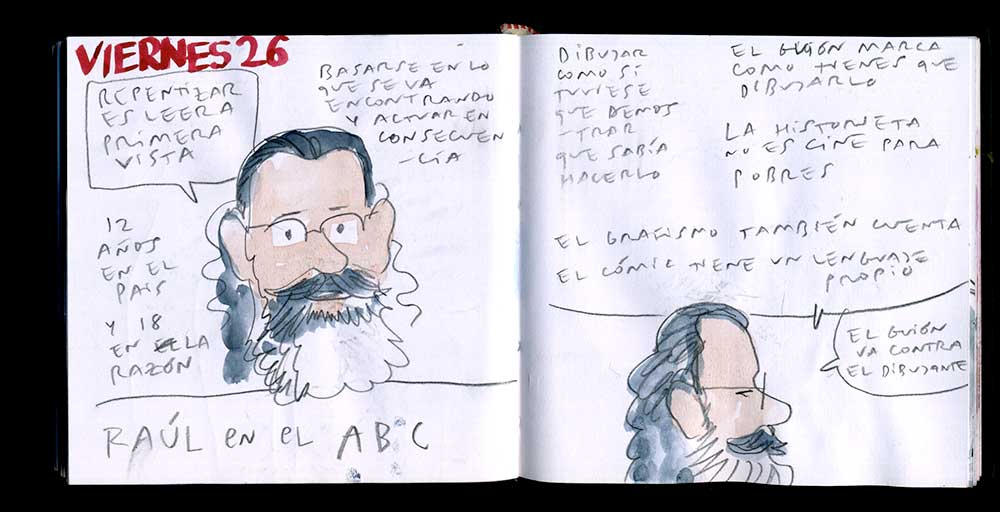 VIERNES 26
REPENTIZAR
ES LEER A
PRIMERA
VISTA
BASARSE EN LO
QUE SE VA
ENCONTRANDO
Y ACTUAR EN
CONSECUEN
-CIA
12
AÑOS
EN EL
PAIS
Y 18
EN LA
RAZÓN
RAÚL en el ABC
DIBUJAR
COMO SI
TUVIESE
QUE DEMOS
-TRAR
QUE SABÍA
HACERLO
EL GUIÓN MARCA
COMO TIENES QUE
DIBUJARLO
LA HISTORIETA
NO ES CINE PARA
POBRES
EL GRAFISMO TAMBIÉN CUENTA
EL CÓMIC TIENE UN LENGUAJE
PROPIO
EL GUIÓN
VA CONTRA
EL DIBUJANTE